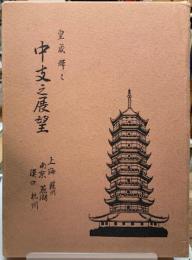 皇威輝く
中支之展望
上海 蘇州
南京 蕪湖
漢口 杭州